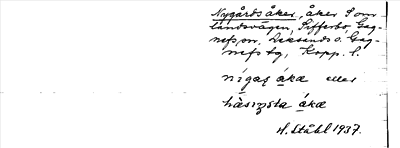 Nygårds åker, åker S om
landsvägen, Sifferbo, Gag-
nefs sn, Leksands o. Gag-
nefs tg, Kopp. l.
nígaṣ áka eller
hàsızsta áka
H. Ståhl 1937.